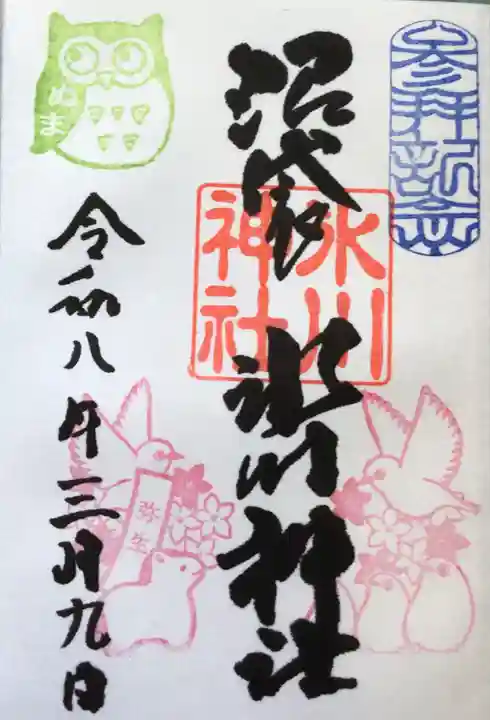 参拝記念
沼袋 氷川神社
氷川
神社
ぬま
弥生
令和八年三月九日